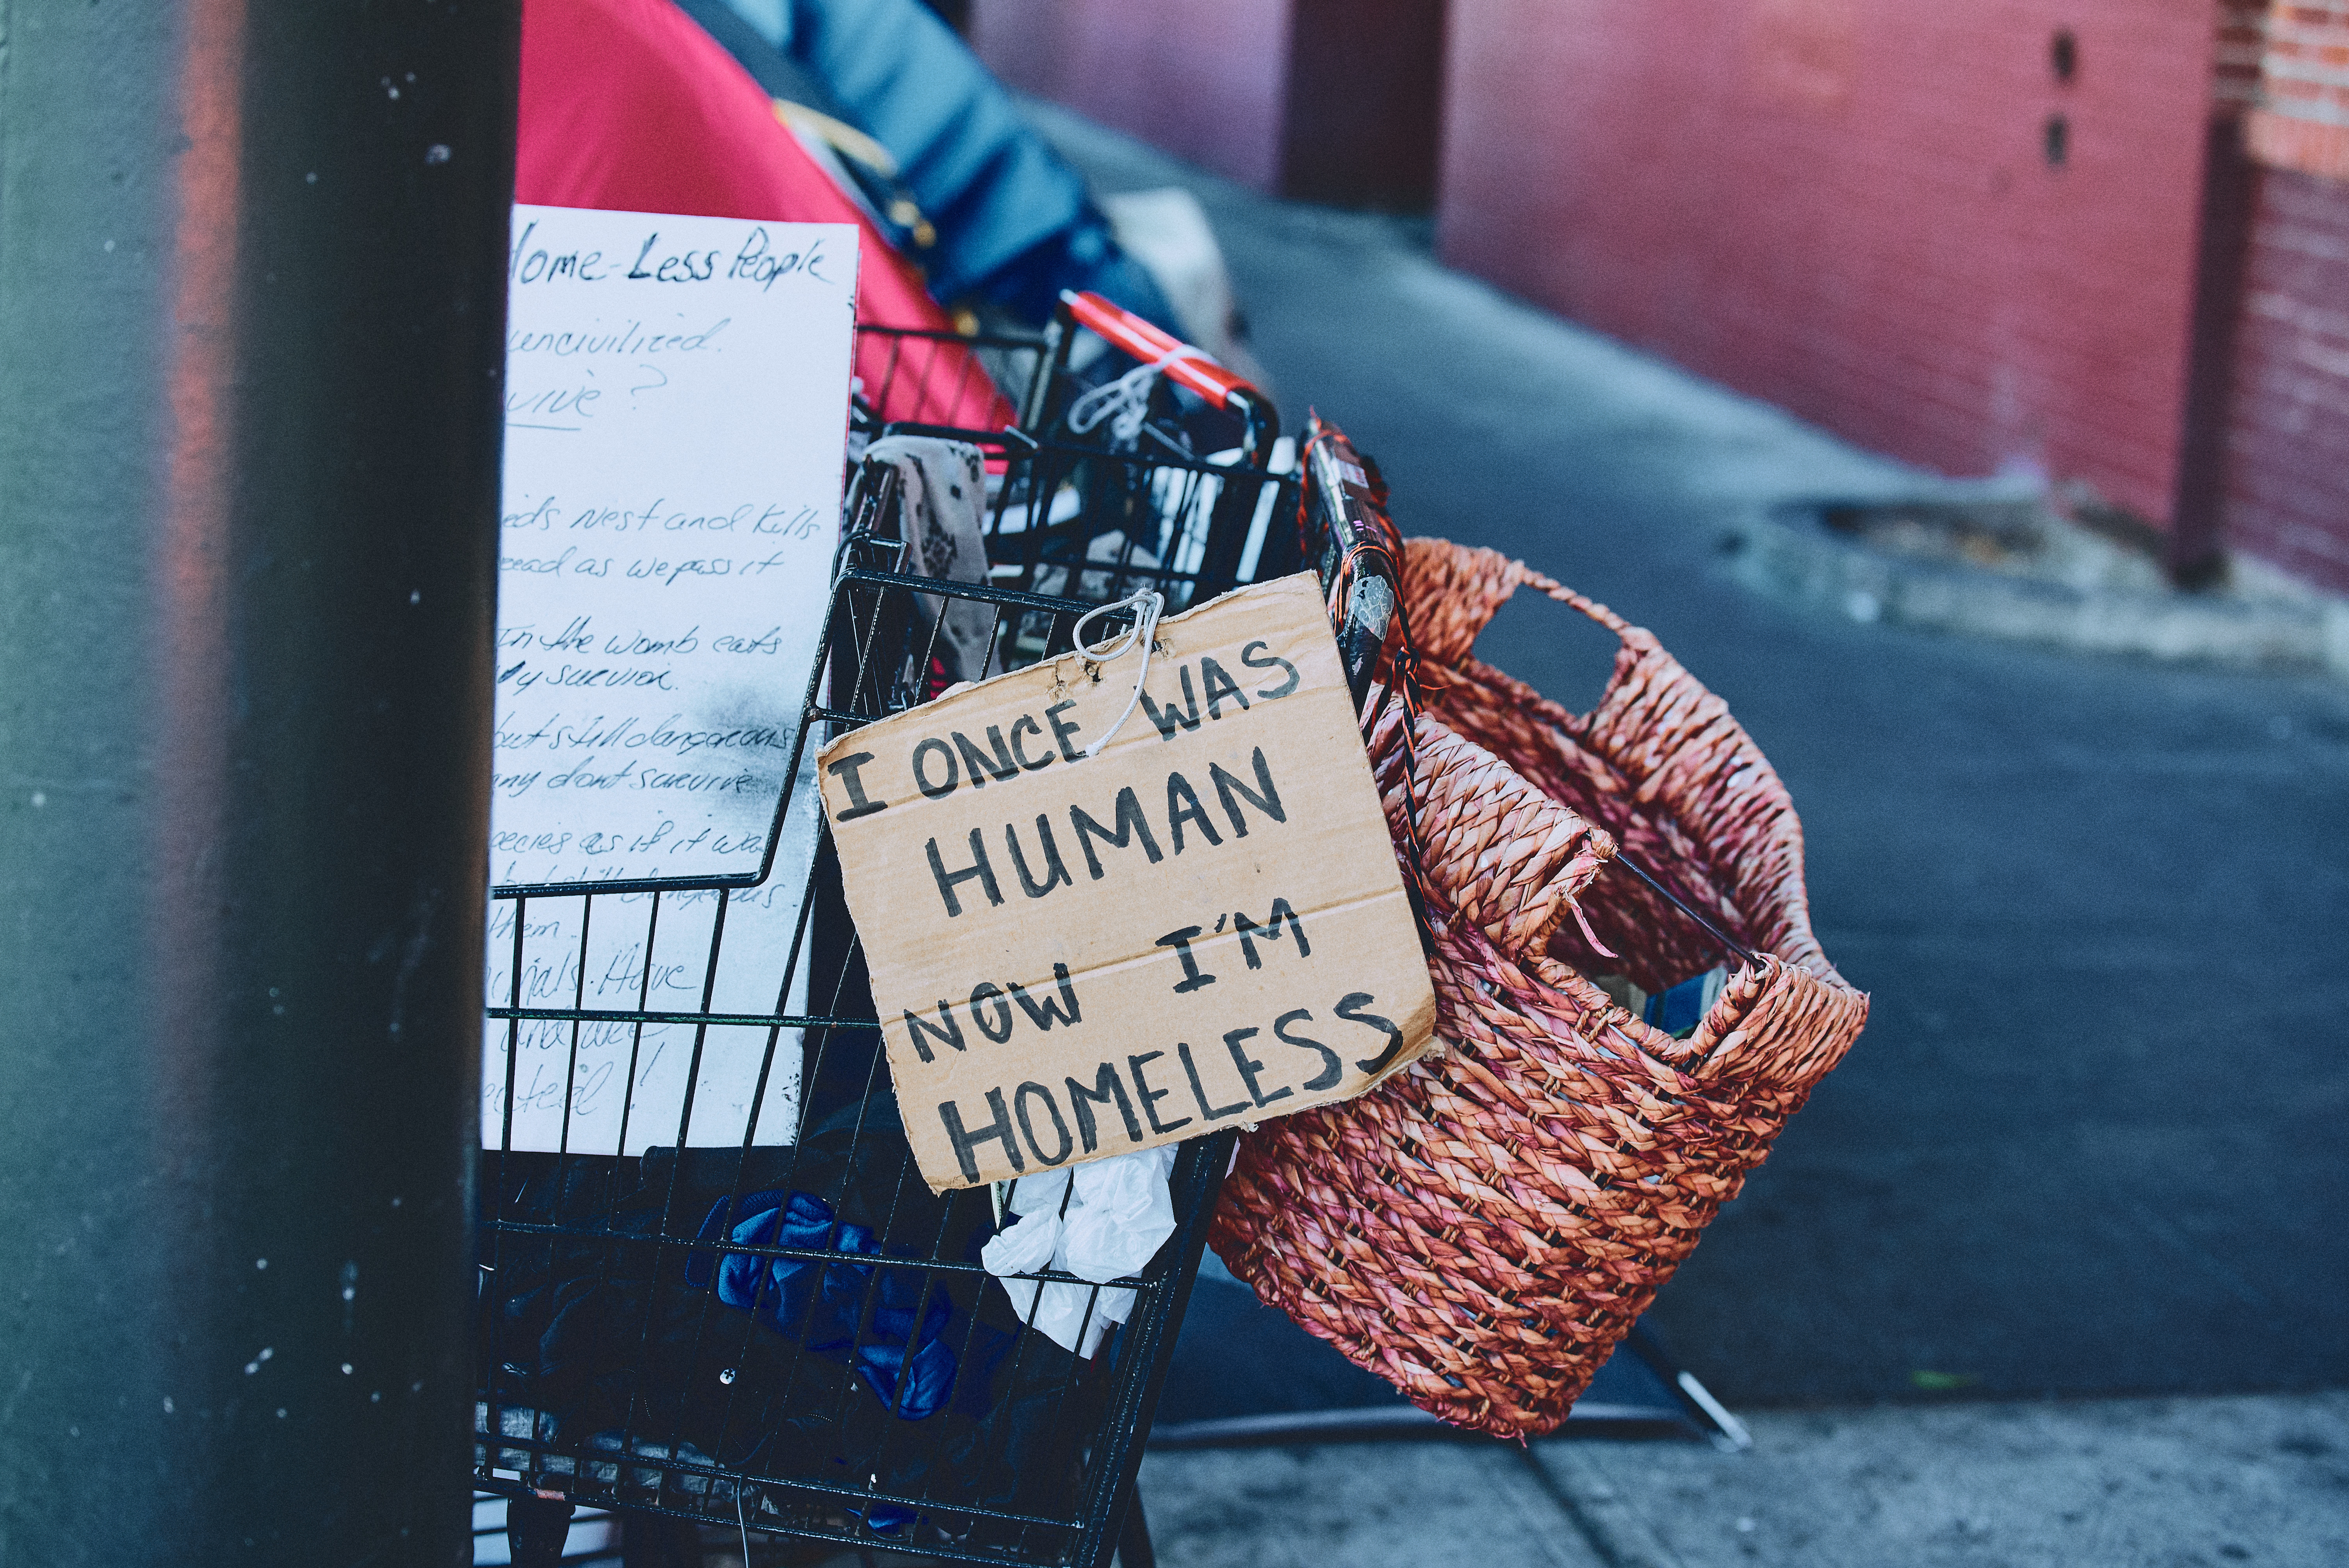 Home-Less People
uncivilized.
vive?
eds Nest and Kills
read as we pass it
In the womb eats
survior.
but still dangerous
any dont survive
pecies as if it was
but still dangerous
them.
imals. Have
and are
ected!
I ONCE WAS
HUMAN
NOW I'M
HOMELESS